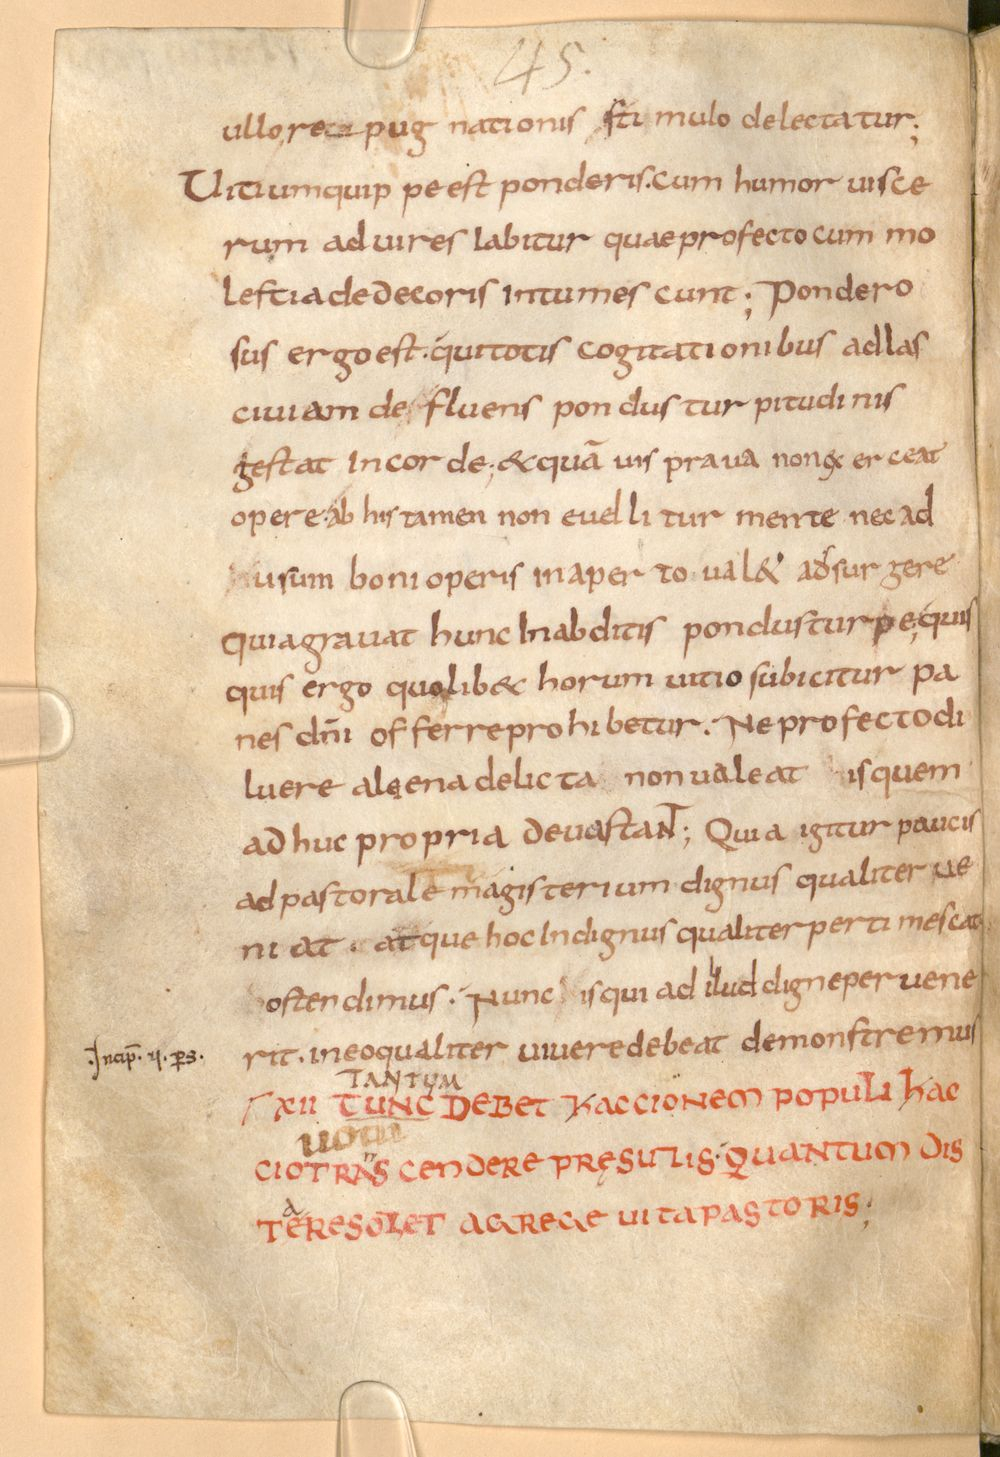 45.
ullo repugnationis stimulo delectatur;
Uitium quippe est ponderis. cum humor uisce
rum ad uires labitur quae profecto cum mo
lestia dedecoris intumescunt; Pondero
sus ergo est. qui totis cogitationibus ad las
ciuiam defluens pondus turpitudinis
gestat in corde; & quā uis praua non exerceat
opere. ab his tamen non euellitur mente nec ad
usum boni operis in aperto ual& adsurgere
Quia grauat hunc In abditis pondus turpe; quis
quis ergo quolib& horum uitio subicitur pa
nes dn̄i offerre prohibetur. Ne profecto di
luere aleena delicta non ualeat is quem
adhuc propria deuastant; Quia igitur paucis
ad pastorale magisterium dignus qualiter ue
niat. atque hoc Indignus qualiter pertimescat
ostendimus. Nunc is qui ad illud digne peruene
rit. in eo qualiter uiuere debeat demonstremus
.Incip̄. II. pars.
TANTUM
XII TUNC DEBET hACCIONEM POPULI hAC
CIO TRANSCENDERE PRĘSULIS. QUANTUM DIS
TARE SOLET A GREGE UITA PASTORIS;